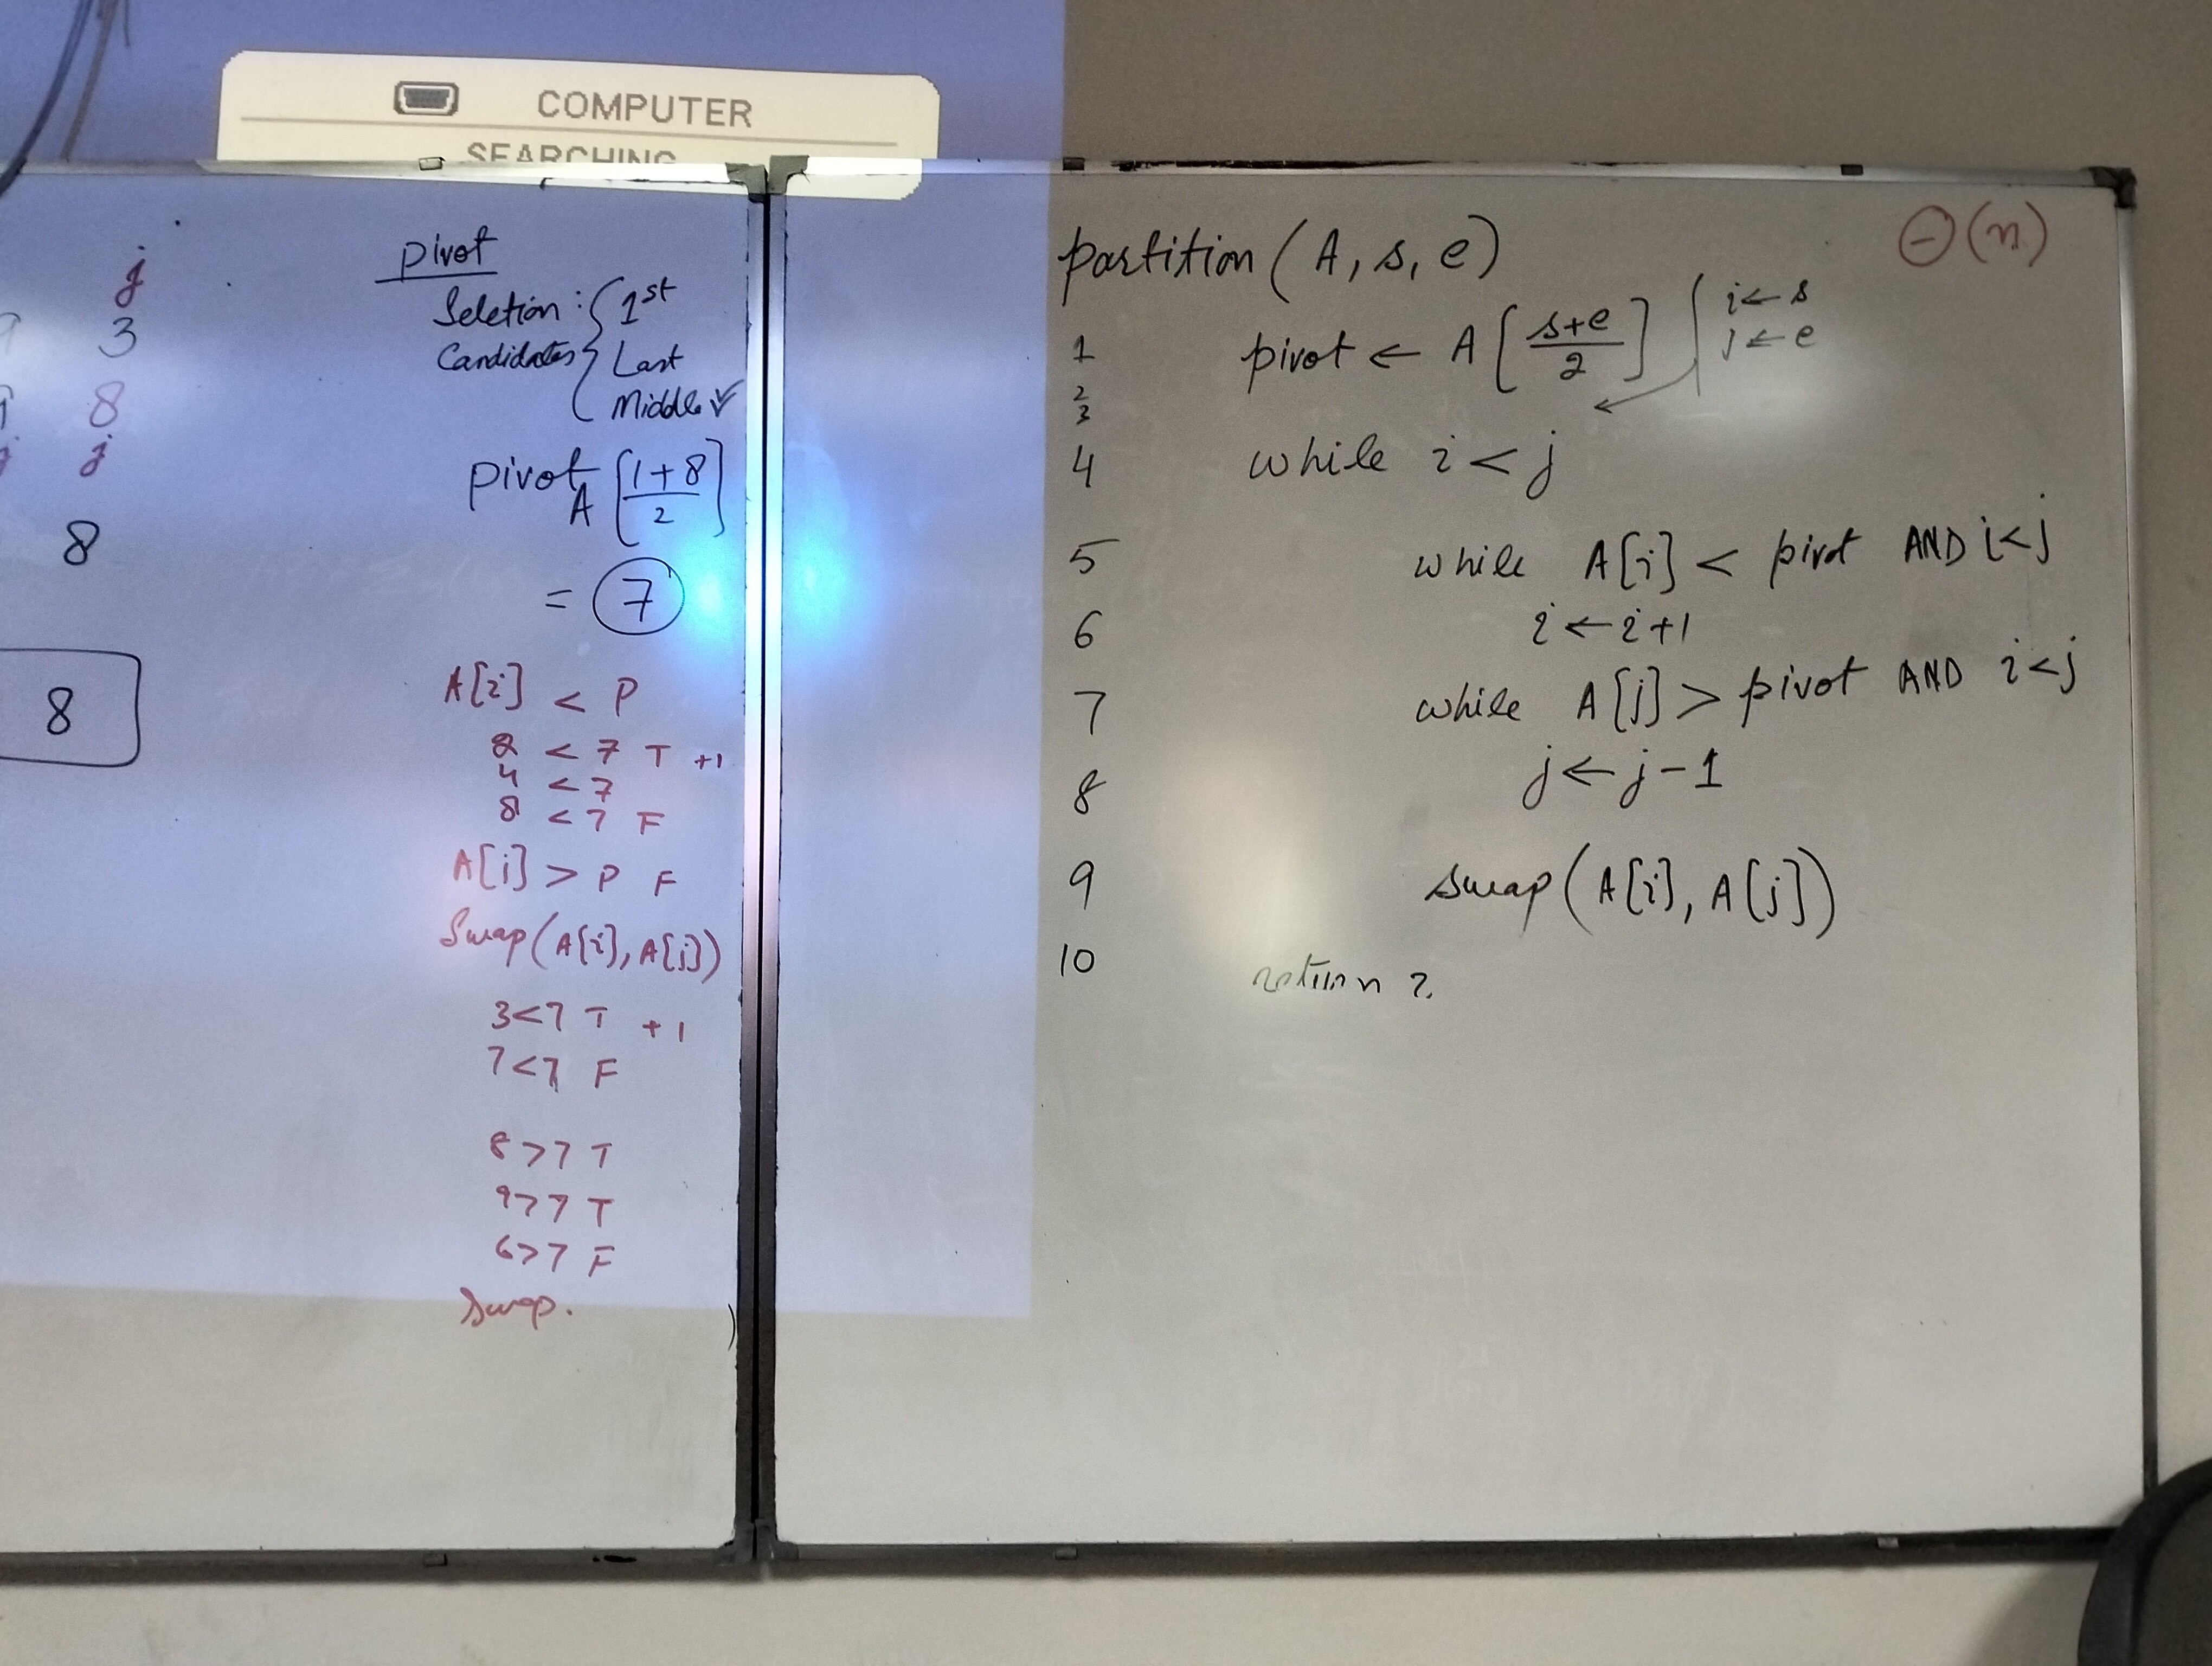 COMPUTER
SEARCHING
j
3
8
j
8
8
pivot
Seletion : { 1st
Candidates Last
Middle ✓
pivot
A [1+8/2]
= 7
A[i] < P
2 < 7 T +1
4 < 7
8 < 7 F
A[j] > P F
Swap(A[i], A[j])
3<7 T +1
7<7 F
8>7 T
9>7 T
6>7 F
Swap.
Θ(n)
partition(A, s, e)
1 pivot ← A[s+e/2]
i ← s
j ← e
2
3
4 while i < j
5 while A[i] < pivot AND i<j
6 i ← i+1
7 while A[j] > pivot AND i<j
8 j ← j-1
9 swap(A[i], A[j])
10 return i